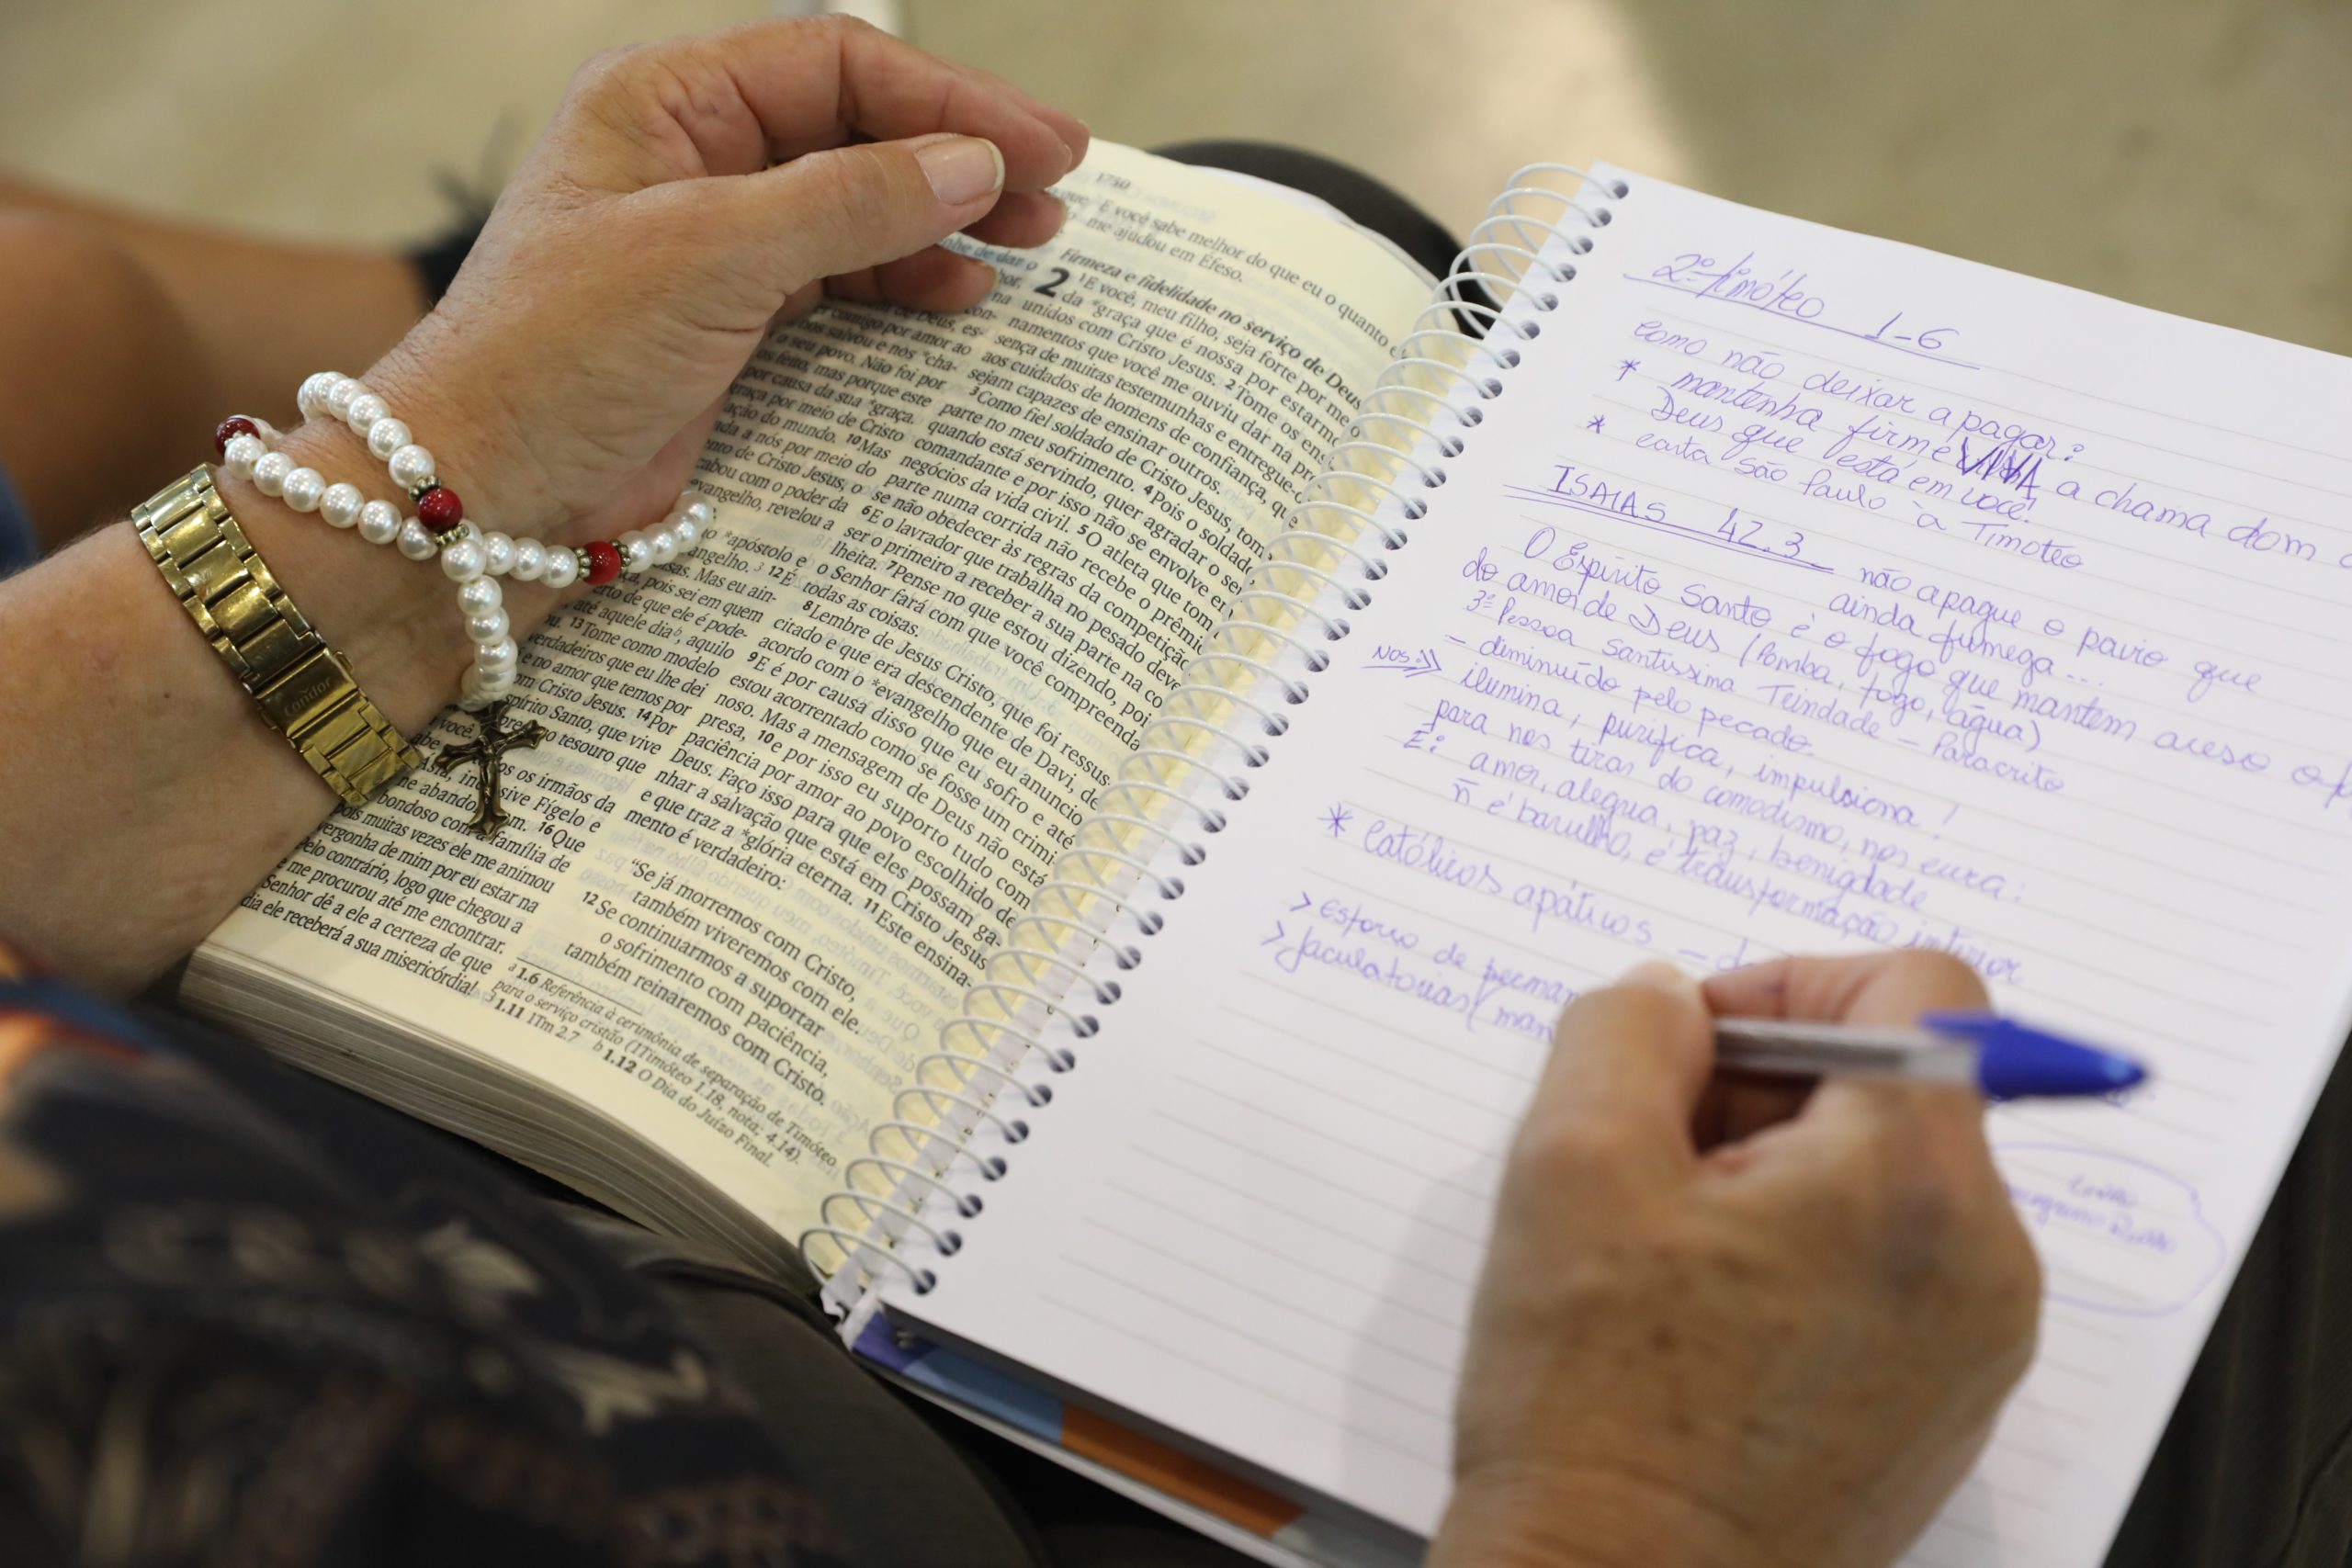 1750
que. E você sabe melhor do que eu o quanto
me ajudou em Éfeso.
Firmeza e fidelidade no serviço de Deus
2 1E você, meu filho, seja forte por me
da *graça que é nossa por estarmo
unidos com Cristo Jesus. 2Tome os ens
namentos que você me ouviu dar na pre
sença de muitas testemunhas e entregue-o
aos cuidados de homens de confiança, que
sejam capazes de ensinar outros.
3Como fiel soldado de Cristo Jesus, tom
parte no meu sofrimento. 4Pois o soldado
quando está servindo, quer agradar o seu
comandante e por isso não se envolve em
negócios da vida civil. 5O atleta que tom
parte numa corrida não recebe o prêmi
se não obedecer às regras da competição
6E o lavrador que trabalha no pesado deve
ser o primeiro a receber a sua parte na co
lheita. 7Pense no que estou dizendo, poi
o Senhor fará com que você compreenda
todas as coisas.
8Lembre de Jesus Cristo, que foi ressus
citado e que era descendente de Davi, de
acordo com o *evangelho que eu anuncio
9E é por causa disso que eu sofro e até
estou acorrentado como se fosse um crimi
noso. Mas a mensagem de Deus não está
presa, 10e por isso eu suporto tudo com
paciência por amor ao povo escolhido de
Deus. Faço isso para que eles possam ga-
nhar a salvação que está em Cristo Jesus
e que traz a *glória eterna. 11Este ensina-
mento é verdadeiro:
"Se já morremos com Cristo,
também viveremos com ele.
12Se continuarmos a suportar
o sofrimento com paciência,
também reinaremos com Cristo.
comigo por amor ao
nos salvou e nos *cha-
o seu povo. Não foi por
feito, mas porque este
por causa da sua *graça.
graça por meio de Cristo
ação do mundo. 10Mas
a nós por meio do
de Cristo Jesus, o
cabou com o poder da
evangelho, revelou a
*apóstolo e
angelho. 3 12É
Mas eu ain-
pois sei em quem
de que ele é pode-
até aquele diab, aquilo
13Tome como modelo
verdadeiros que eu lhe dei
e no amor que temos por
Cristo Jesus. 14Por
Santo, que vive
tesouro que
os irmãos da
Fígelo e
16Que
bondoso com a família de
pois muitas vezes ele me animou
vergonha de mim por eu estar na
pelo contrário, logo que chegou a
me procurou até me encontrar.
Senhor dê a ele a certeza de que
dia ele receberá a sua misericórdia!
a 1.6 Referência à cerimônia de separação de Timóteo
para o serviço cristão (1Timóteo 1.18, nota; 4.14).
3 1.11 1Tm 2.7 b 1.12 O Dia do Juízo Final.
Condor
2º timóteo 1-6
Como não deixar apagar?
* mantenha firme a chama dom
Deus que está em você!
* carta São Paulo à Timoteo
ISAIAS 42.3 não apague o pavio que
ainda fumega...
O Espírito Santo é o fogo que mantem aceso
do amor de Deus (Pomba, fogo, água)
3ª Pessoa Santíssima Trindade - Paracrito
NOS: - diminuído pelo pecado
ilumina, purifica, impulsiona!
para nos tiras do comodismo, nos cura!
É: amor, alegria, paz, benigdade
ñ é barulho, é transformação interior
* Católicos apáticos -
> esforço de
> Jaculatorias